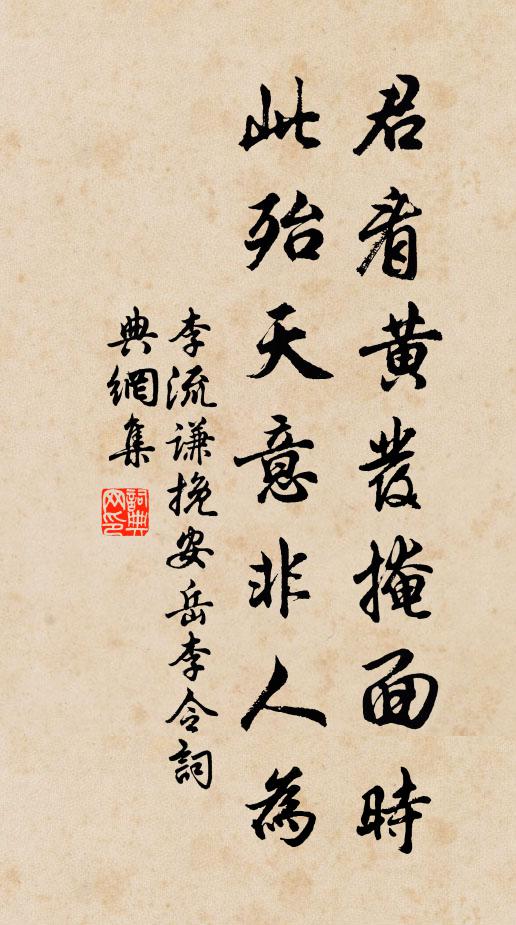 君看黄發掩面時
此殆天意非人為
李流謙挽安岳李令詞
典網集
詞典網印